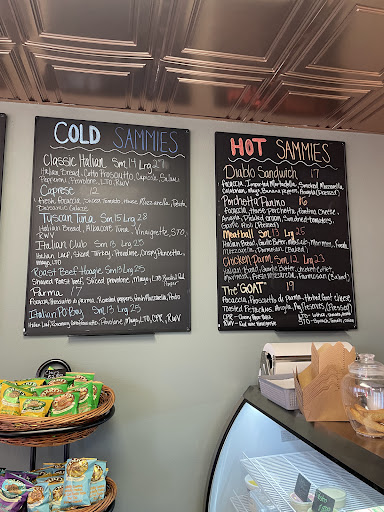 COLD SAMMIES
Classic Italian Sm 14 Lrg 27
Italian Bread, Cotto Prosciutto, Capicola, Salami,
Pepperoni, Provolone, LTO, RWV
Caprese 12
Fresh Focaccia, Sliced Tomato, House Mozzarella, Pesto,
Balsamic Glaze
Tuscan Tuna Sm 15 Lrg 28
Italian Bread, Albacore Tuna, Vinaigrette, STO,
RWV
Italian Club Sm 13 Lrg 25
Italian Loaf, Sliced Turkey, Provolone, Crispy
Mayo, LTO
Roast Beef Hoagie Sm 13 Lrg 25
Shaved Roast Beef, Sliced provolone, Mayo, LTO
Parma 17
Focaccia, Prosciutto di parma, Roasted peppers, Fresh Mozzarella, Pesto
Italian Po Boy Sm 13 Lrg 25
Italian Loaf, Provolone, Mayo, LTO, CPR, RWV
HOT SAMMIES
Diablo Sandwich 17
Focaccia, Imported Mortadella, Smoked Mozzarella,
Calabrian Mayo, Banana Peppers, (Pressed)
Porchetta Panino 16
Focaccia, House porchetta, Fontina Cheese,
Arugula, Pickled onion,
Garlic Aioli (Pressed)
Meatball Sm 13 Lrg 25
Italian Bread, Garlic Butter, Meatballs, Marinara, Fresh
mozzarella, Parmesan, (Baked)
Chicken Parm Sm 12 Lrg 23
Italian Bread, Garlic Butter, Chicken Cutlet,
Marinara, Fresh Mozzarella, Parmesan (Baked)
The "GOAT" 19
Focaccia, Prosciutto di parma, Herbed Goat Cheese,
Toasted Pistachios, Arugula, (Pressed)
CPR - Cherry Pepper Relish
RWV - Red Wine Vinaigrette
LTO - Lettuce, Tomato, Onion